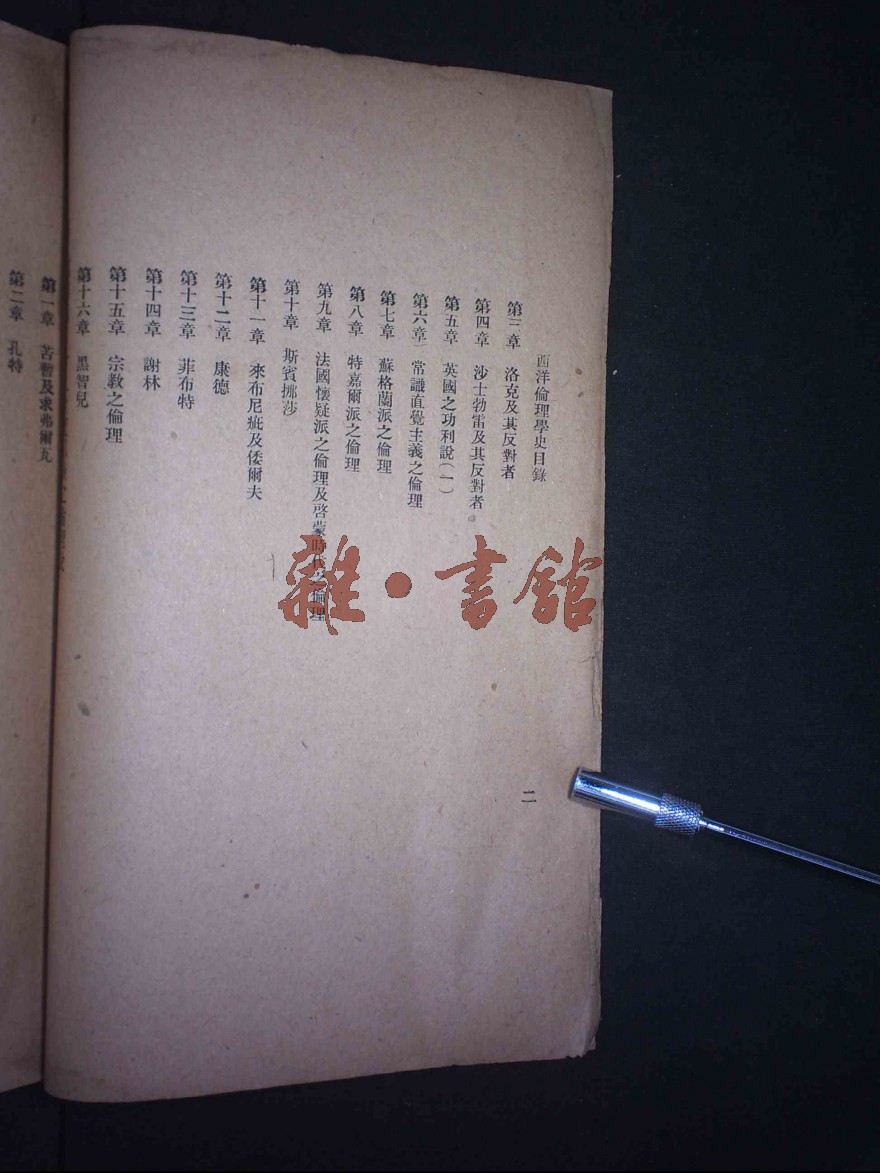 西洋倫理學史目錄
第三章　洛克及其反對者
第四章　沙士勃雷及其反對者
第五章　英國之功利說(一)
第六章　常識直覺主義之倫理
第七章　蘇格蘭派之倫理
第八章　特嘉爾派之倫理
第九章　法國懷疑派之倫理及啓蒙時代之倫理
第十章　斯賓挪莎
第十一章　來布尼疵及倭爾夫
第十二章　康德
第十三章　菲布特
第十四章　謝林
第十五章　宗教之倫理
第十六章　黑智兒
二
第一章　苦暫及求弗爾瓦
第二章　孔特
雜·書館